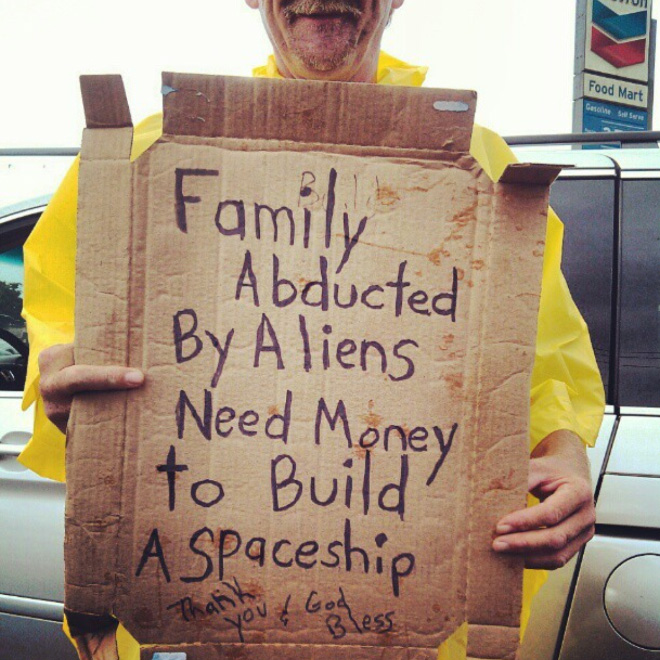 Food Mart
Gasoline Self Serve
Family
Abducted
By Aliens
Need Money
to Build
A Spaceship
Thank you & God Bless